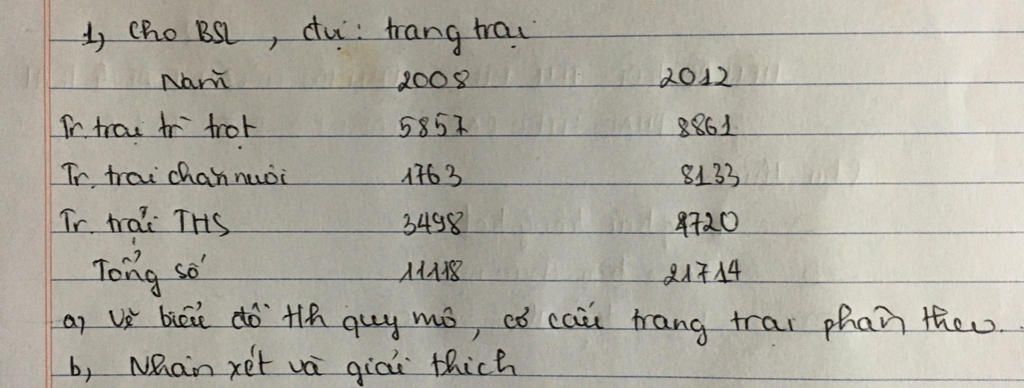 1, Cho BSL, đvị: trang trại
Năm 2008 2012
Tr. trại tr trọt 5857 8861
Tr. trại chăn nuôi 1763 8133
Tr. trại THS 3498 4720
Tổng số 11118 21714
a, Vẽ biểu đồ th quy mô, cơ cấu trang trại phân theo.
b, Nhận xét và giải thích